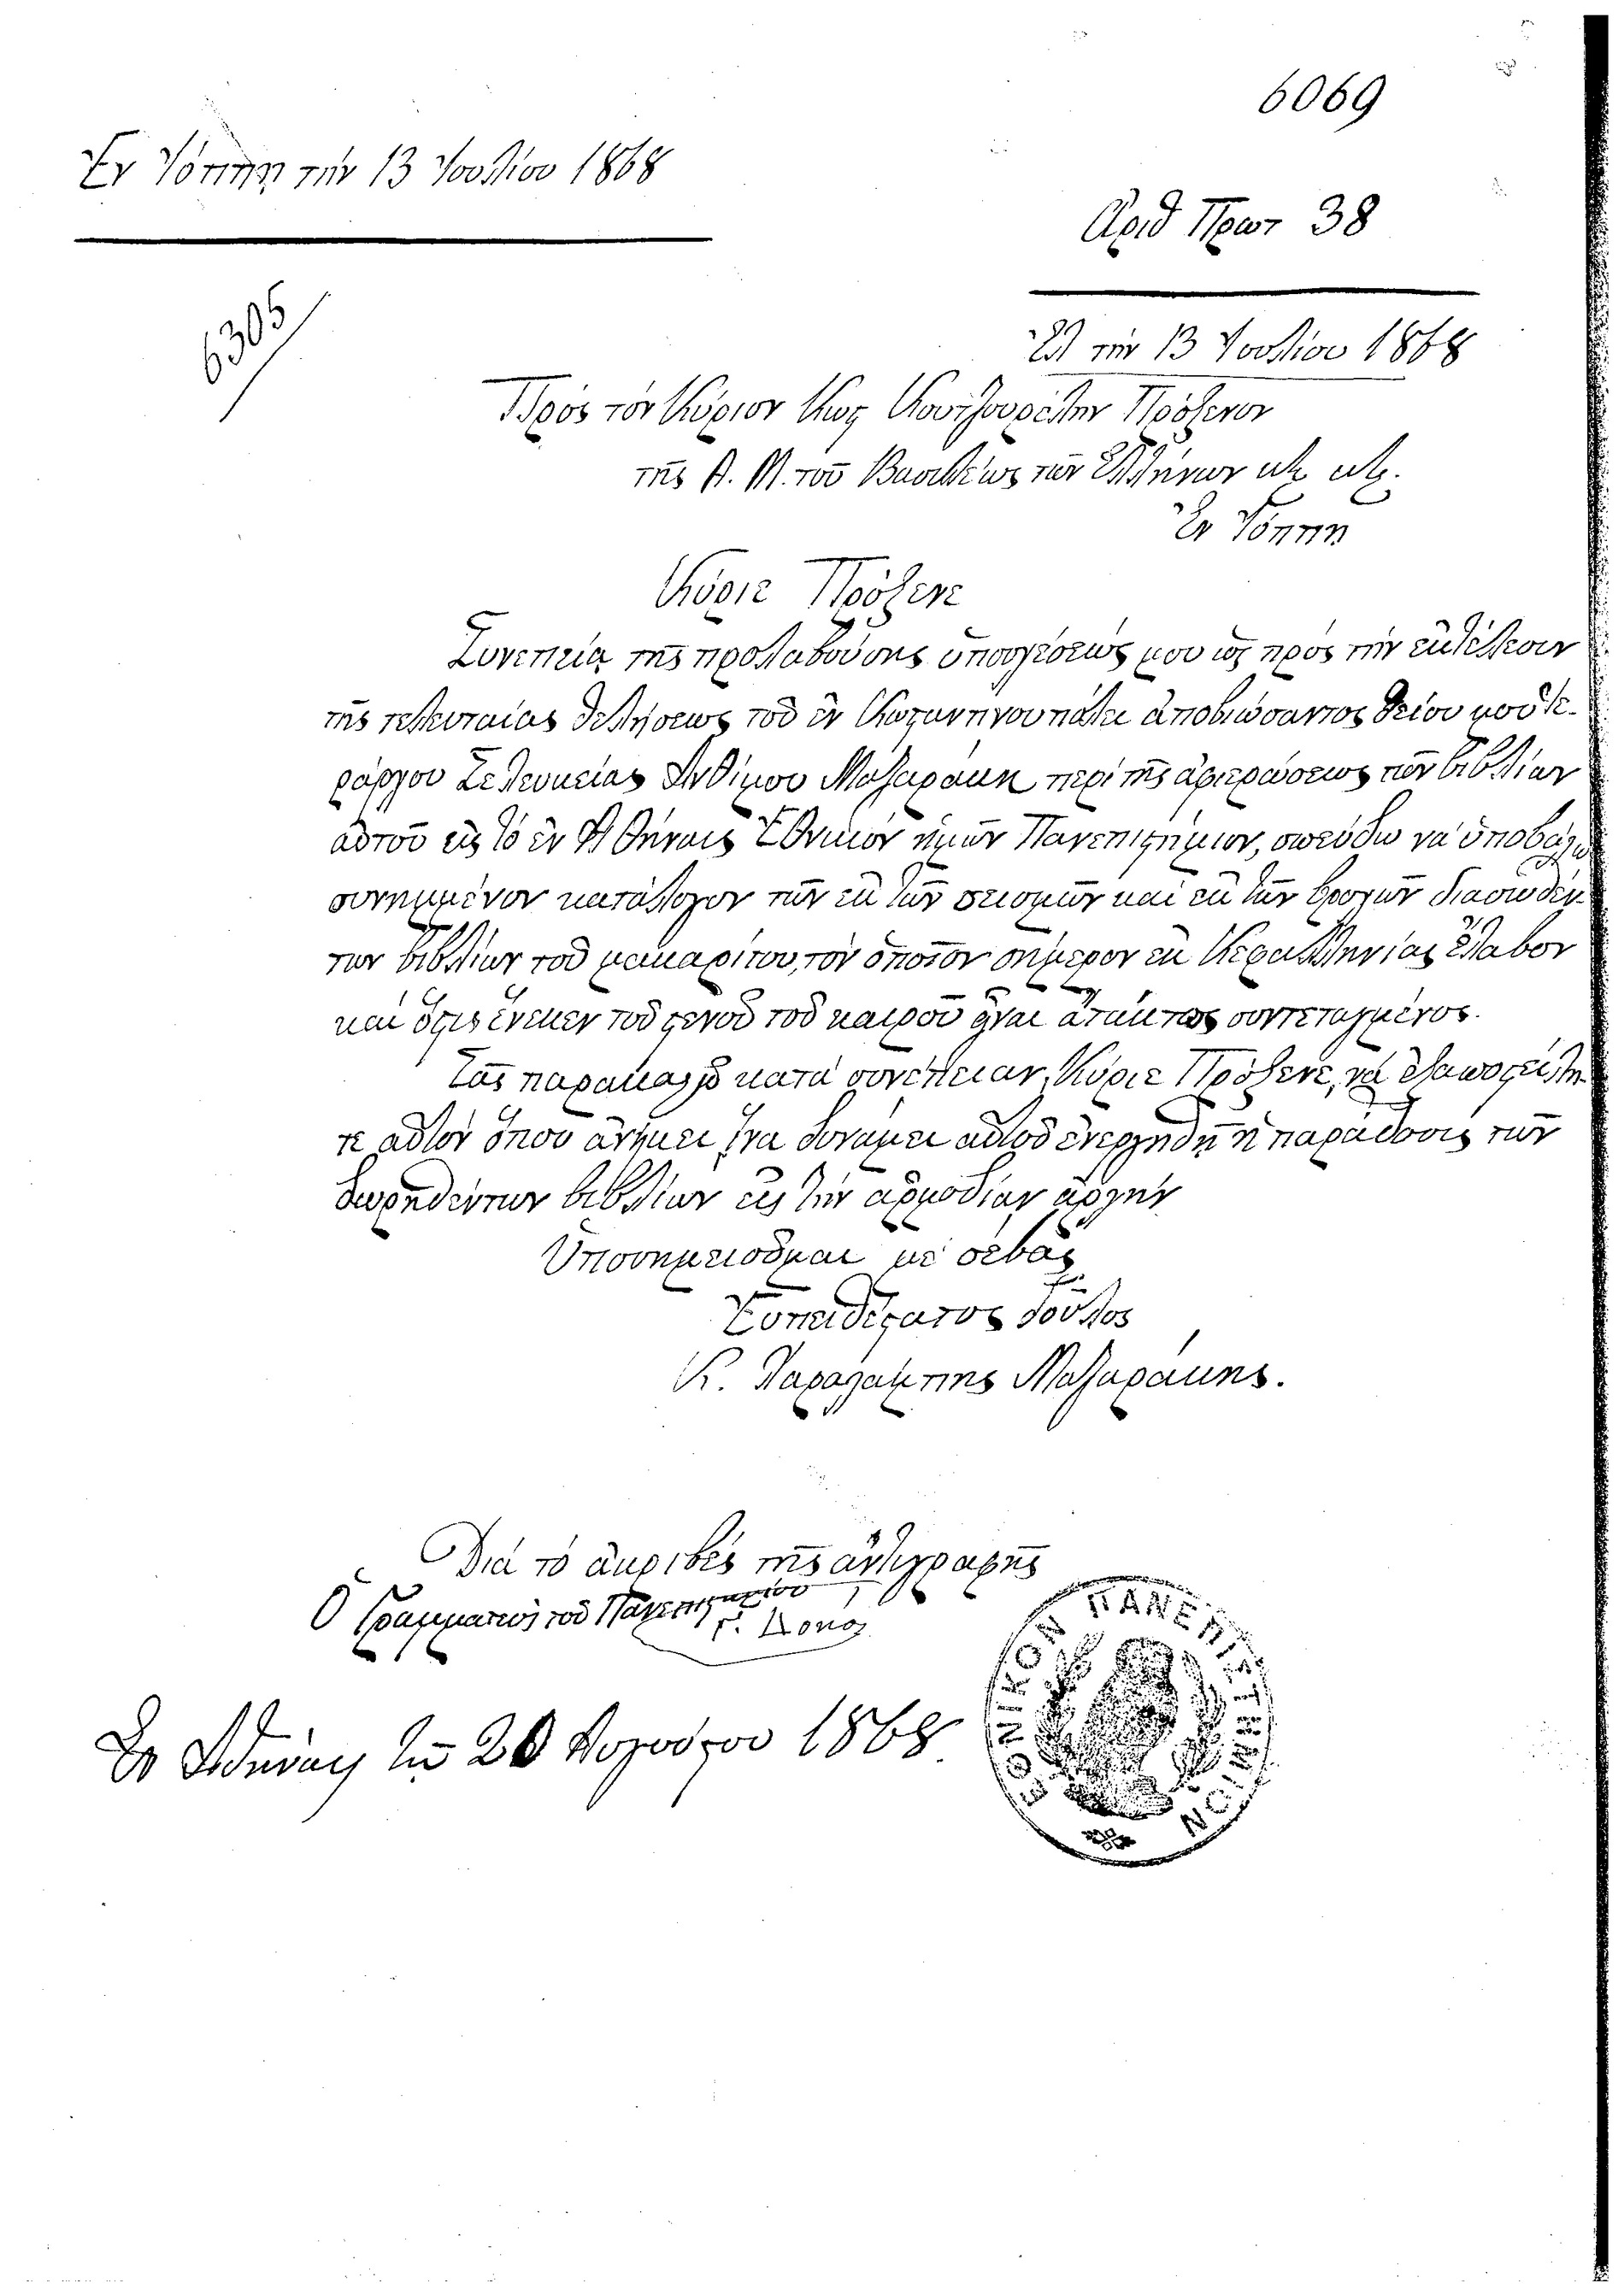 6069
Ἐν Ἰόππῃ τὴν 13 Ἰουλίου 1868
Ἀριθ Πρωτ 38
6305
Ἐλ τὴν 13 Ἰουλίου 1868
Πρὸς τὸν Κύριον Κως Πρόξενον
τῆς Α. Μ. τοῦ Βασιλέως τῶν Ἑλλήνων κλ κλ.
Ἐν Ἰόππῃ
Κύριε Πρόξενε
Συνεπείᾳ τῆς προλαβούσης ὑποσχέσεώς μου ὡς πρὸς τὴν ἐκτέλεσιν
τῆς τελευταίας θελήσεως τοῦ ἐν Κωσταντηνουπόλει ἀποβιώσαντος θείου μοῦ Ἱε-
ράρχου Σελευκείας Ἀνθίμου Μαζαράκη περὶ τῆς ἀφιερώσεως τῶν βιβλίων
αὐτοῦ εἰς τὸ ἐν Ἀθήναις Ἐθνικὸν ἡμῶν Πανεπιστήμιον, σπεύδω νὰ ὑποβάλω
συνημμένον κατάλογον τῶν ἐκ τῶν σεισμῶν καὶ ἐκ τῶν βροχῶν διασωθέν-
των βιβλίων τοῦ μακαρίτου, τὸν ὁποῖον σήμερον ἐκ Κεφαλληνίας ἔλαβον
καὶ ὅστις ἕνεκεν τοῦ στενοῦ τοῦ καιροῦ εἶναι ἀτάκτως συντεταγμένος.
Σᾶς παρακαλῶ κατὰ συνέπειαν, Κύριε Πρόξενε, νὰ ἐξαποστείλη-
τε αὐτὸν ὅπου ἀνήκει ἵνα δυνάμει αὐτοῦ ἐνεργηθῇ ἡ παράδοσις τῶν
δωρηθέντων βιβλίων εἰς τὴν ἁρμοδίαν ἀρχήν
Ὑποσημειοῦμαι μὲ σέβας
Εὐπειθέστατος δοῦλος
Κ. Μαζαράκης.
Διὰ τὸ ἀκριβὲς τῆς ἀντιγραφῆς
Ὁ Γραμματεὺς τοῦ Πανεπιστημίου
Ἐν Ἀθήναις τῇ 20 Αὐγούστου 1868
ΕΘΝΙΚΟΝ ΠΑΝΕΠΙΣΤΗΜΙΟΝ